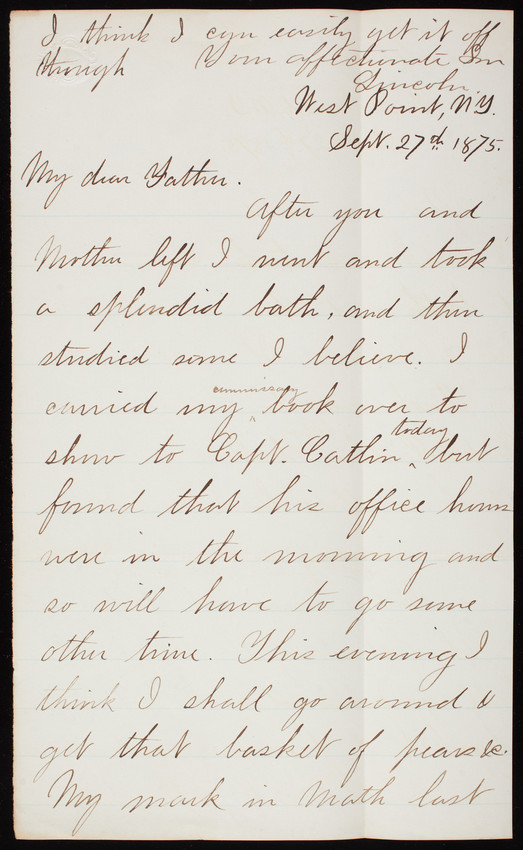 I think I can easily get it off
though Your affectionate Son
Lincoln.
West Point, N.Y.
Sept. 27th 1875.
My dear Father.
After you and
Mother left I went and took
a splendid bath, and then
studied some I believe. I
carried my commissary book over to
show to Capt. Catlin today but
found that his office hours
were in the morning and
so will have to go some
other time. This evening I
think I shall go around &
get that basket of pears &c.
My mark in Math last